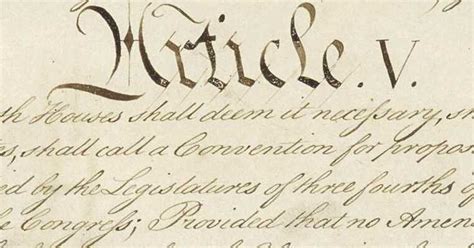 Article. V.
th Houses shall deem it neceſsary, sh
es, shall call a Convention for propos
ed by the Legislatures of three fourths
e Congreſs; Provided that no Amen